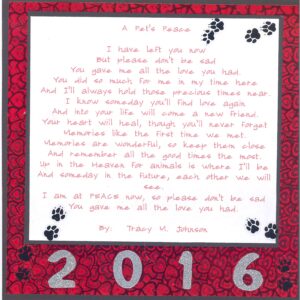 A Pet's Peace
I have left you now
But please don't be sad
You gave me all the love you had.
You did so much for me in my time here
And I'll always hold those precious times near.
I know someday you'll find love again
And into your life will come a new friend.
Your heart will heal, though you'll never forget
Memories like the first time we met.
Memories are wonderful, so keep them close
And remember all the good times the most.
Up in the Heaven for animals is where I'll be
And someday in the future, each other we will
see.
I am at PEACE now, so please don't be sad
You gave me all the love you had.
By: Tracy M. Johnson
2016